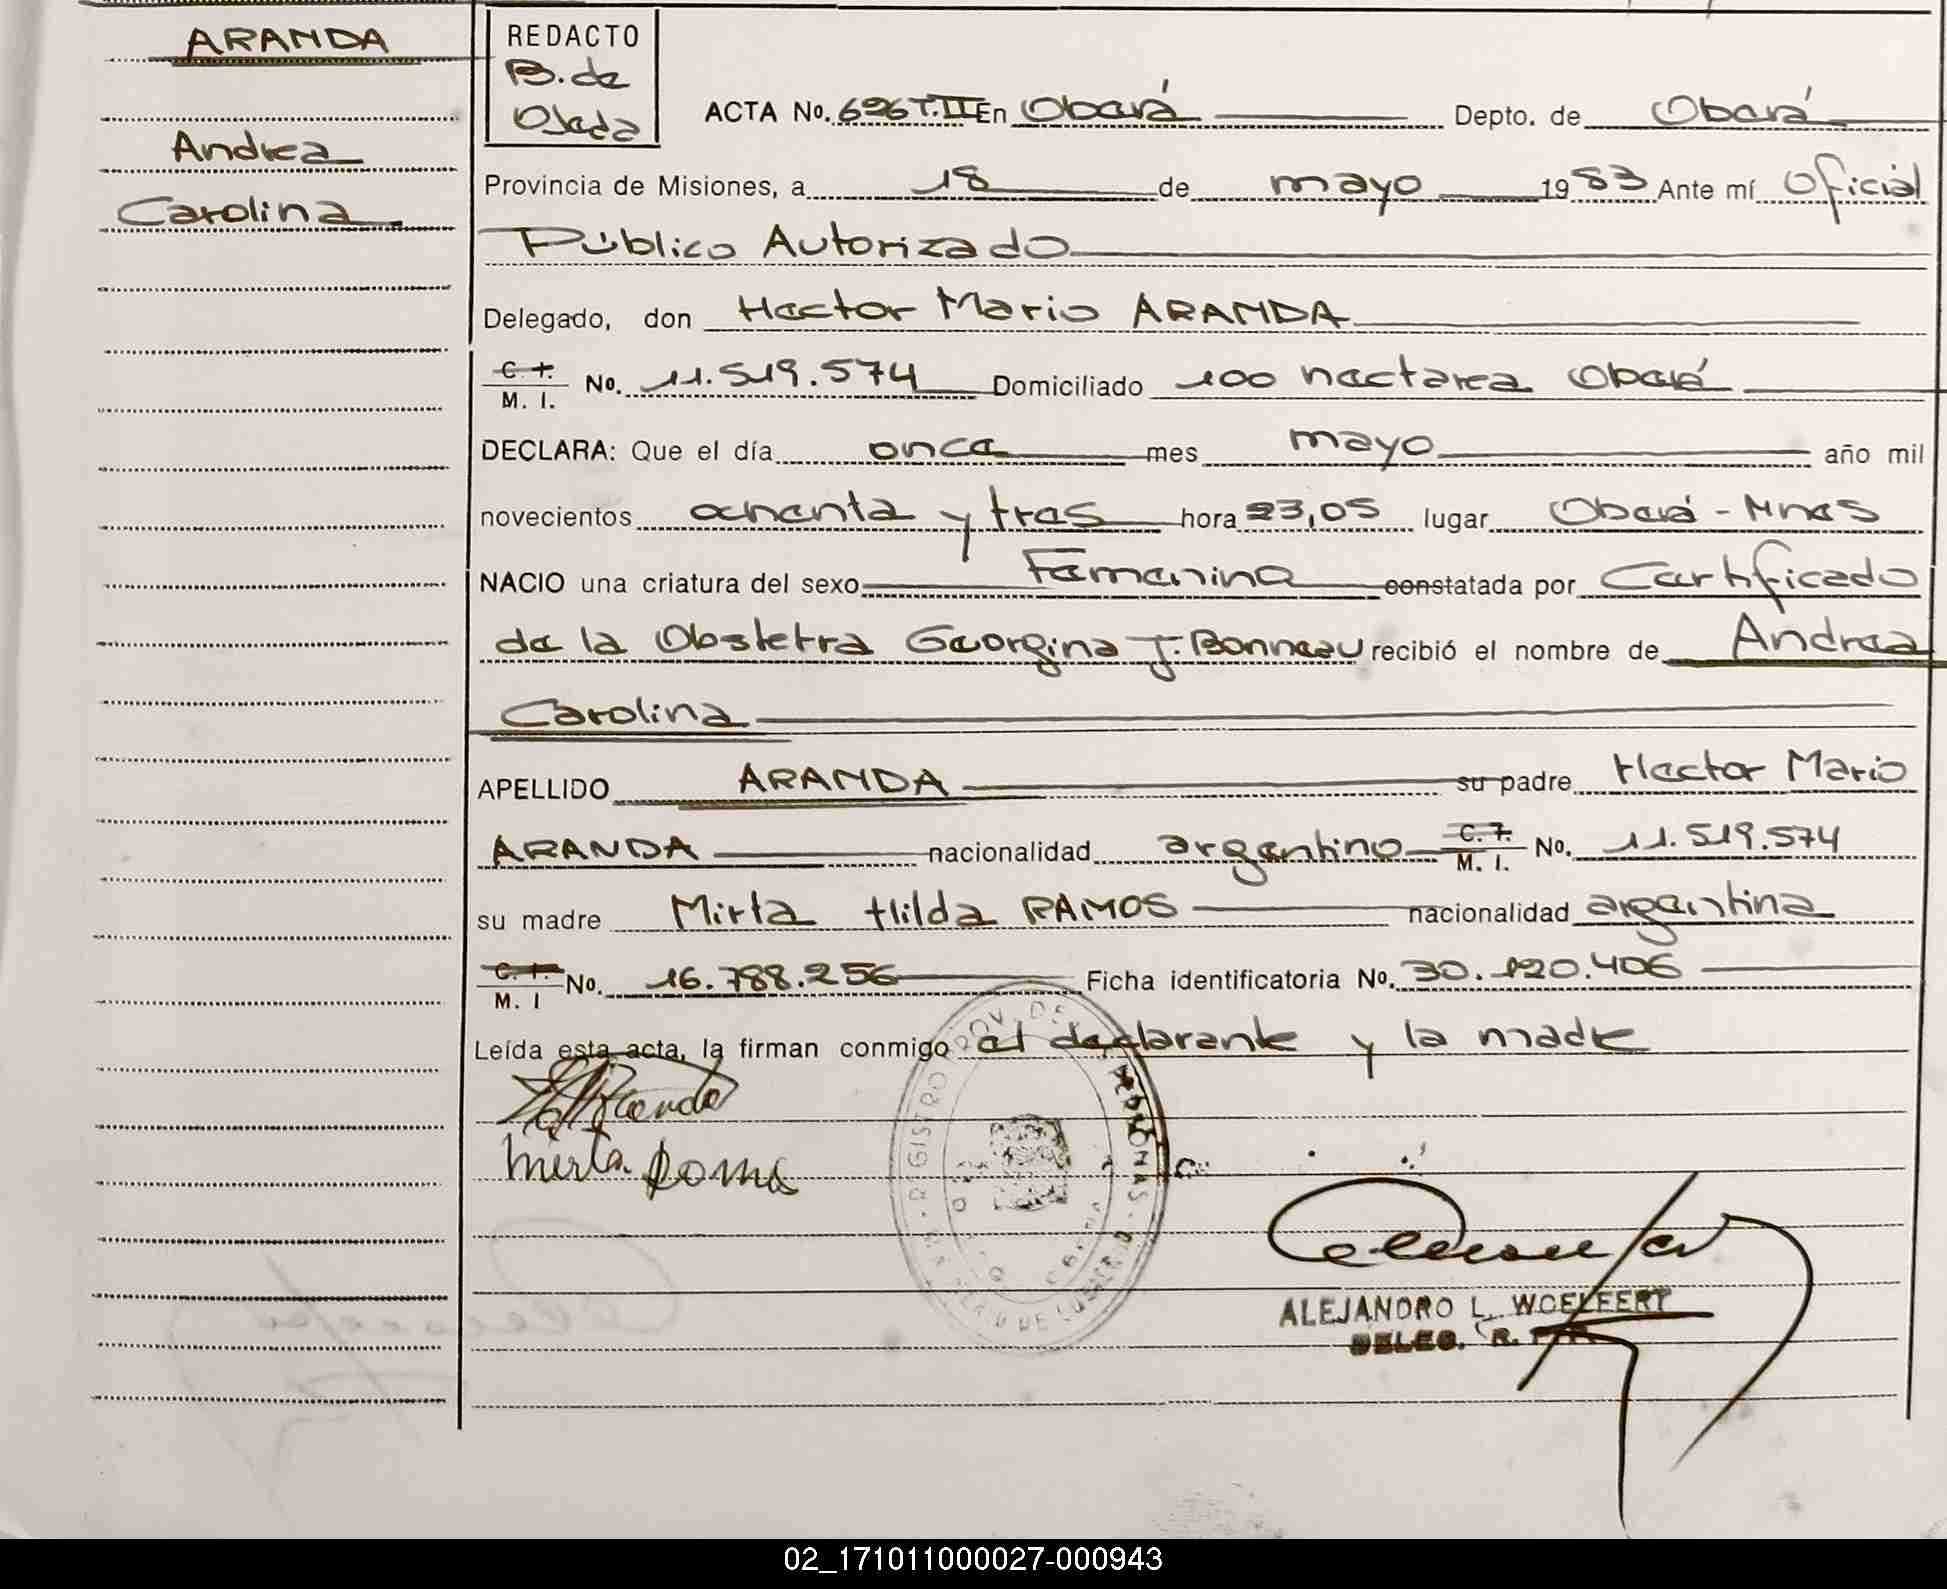 ARANDA
Andrea
Carolina
REDACTO
B. de
Ojeda
ACTA No. 626 T.II En Oberá Depto. de Oberá
Provincia de Misiones, a 18 de mayo 1983 Ante mí Oficial
Público Autorizado
Delegado, don Hector Mario ARANDA
C. I. / M. I. No. 11.519.574 Domiciliado 100 hectarea Oberá
DECLARA: Que el día once mes mayo año mil
novecientos ochenta y tres hora 23,05 lugar Oberá - Mnes
NACIO una criatura del sexo Femenino constatada por Certificado
de la Obstetra Georgina J. Bonneau recibió el nombre de Andrea
Carolina
APELLIDO ARANDA su padre Hector Mario
ARANDA nacionalidad argentino C. I. / M. I. No. 11.519.574
su madre Mirta Hilda RAMOS nacionalidad argentina
C. I. / M. I No. 16.788.256 Ficha identificatoria No. 30.120.406
Leída esta acta, la firman conmigo el declarante y la madre
Mirta
ALEJANDRO L. WOELFERT
DELEG. R.
02_171011000027-000943